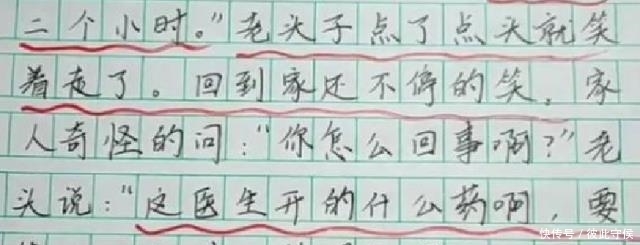 二个小时。"老头子点了点头就笑
着走了。回到家还不停的笑，家
人奇怪的问："你怎么回事啊？"老
头说："这医生开的什么药啊，要
快传号/彼此守候